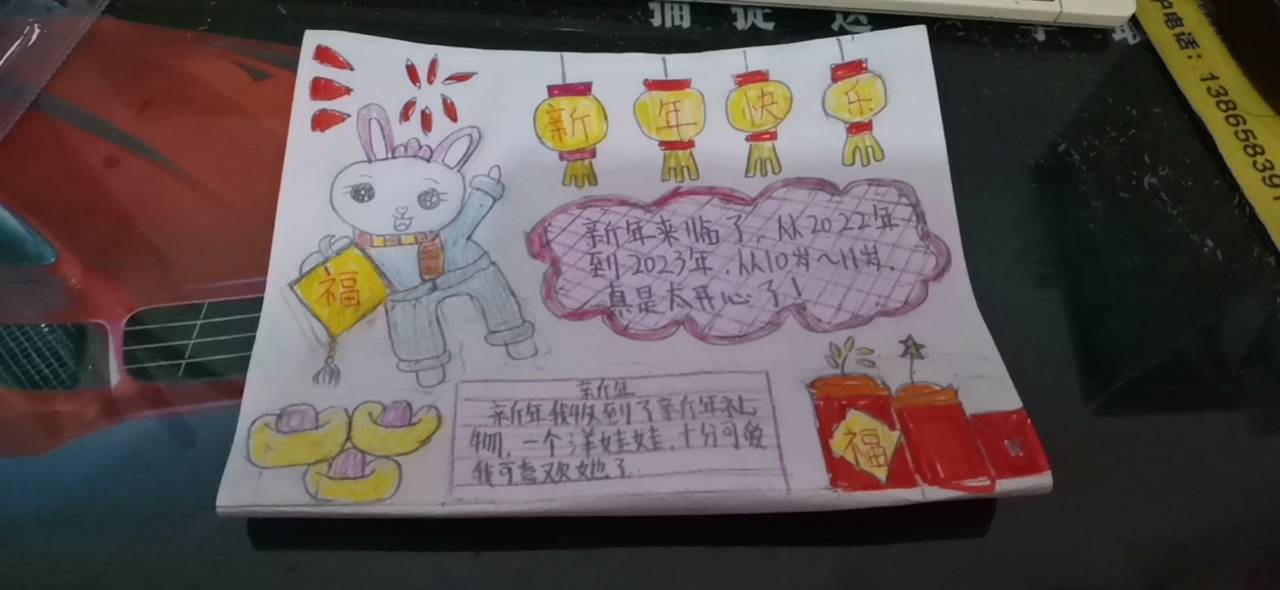 捕捉
户电话：138658391
新年快乐
新年来临了，从2022年
到2023年，从10岁～11岁，
真是太开心了！
福
新年
新年我收到了新年礼
物，一个洋娃娃，十分可爱
我可喜欢她了
福